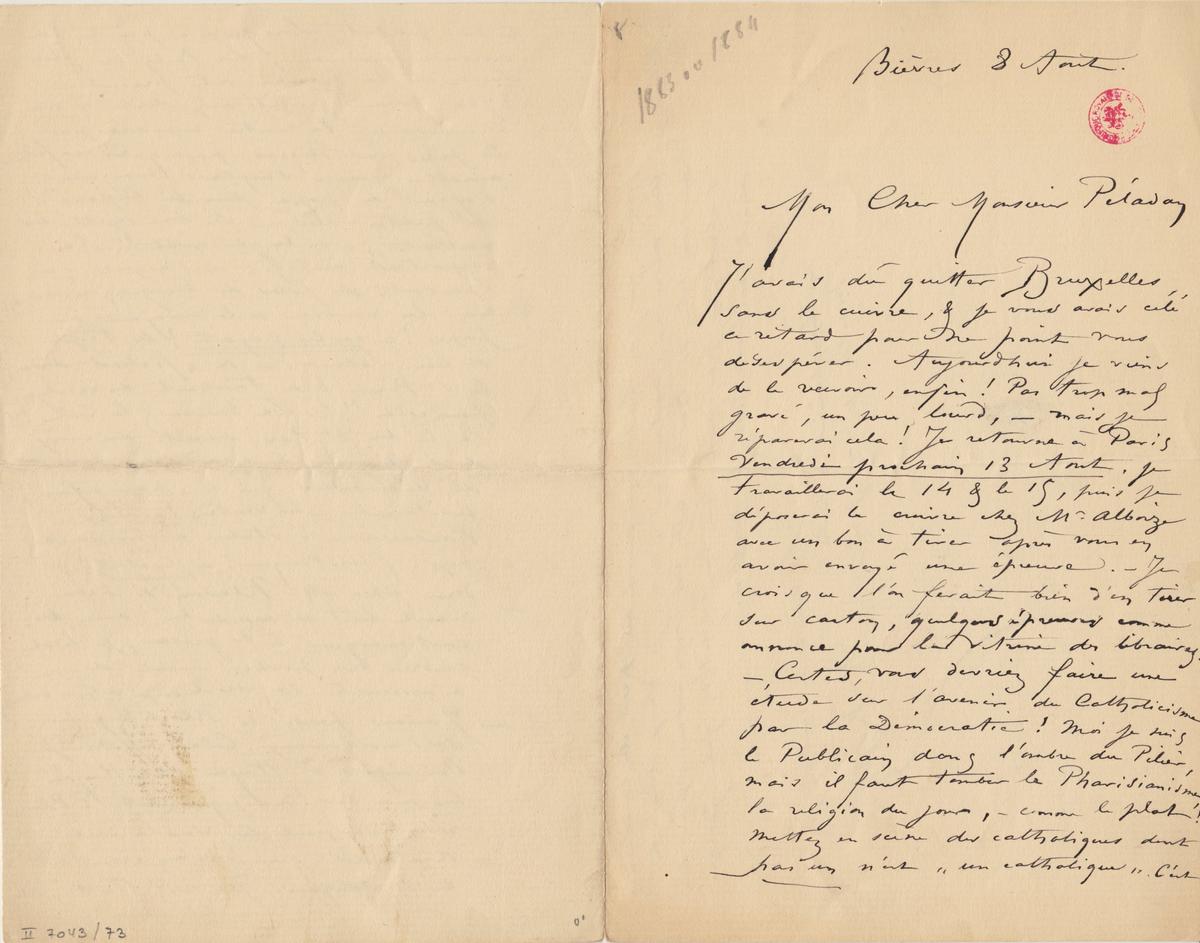 8
1883 ou 1884
Bièvres 8 Aout.
Mon Cher Monsieur Péladan
J'avais dû quitter Bruxelles,
sans le cuivre, & je vous avais célé
ce retard pour ne point vous
désespérer. Aujourdhui je viens
de le recevoir, enfin ! Pas trop mal
gravé, un peu lourd, — mais je
réparerai cela ! Je retourne à Paris
Vendredi prochain 13 Aout. je
travaillerai le 14 & le 15, puis je
déposerai le cuivre chez Mr Alboize
avec un bon à tirer après vous en
avoir envoyé une épreuve. — Je
crois que l'on ferait bien d'en tirer
sur carton, quelques épreuves comme
annonce pour la vitrine des libraires.
— Certes, vous devriez faire une
étude sur l'avenir du Catholicisme
par la Démocratie ! Moi je suis
le Publicain dans l'ombre du Pilier,
mais il faut tomber le Pharisianisme
la religion du jour, — comme le plat !
Mettez en scène des catholiques dont
pas un n'est „ un catholique ". C'est
II 7043/73